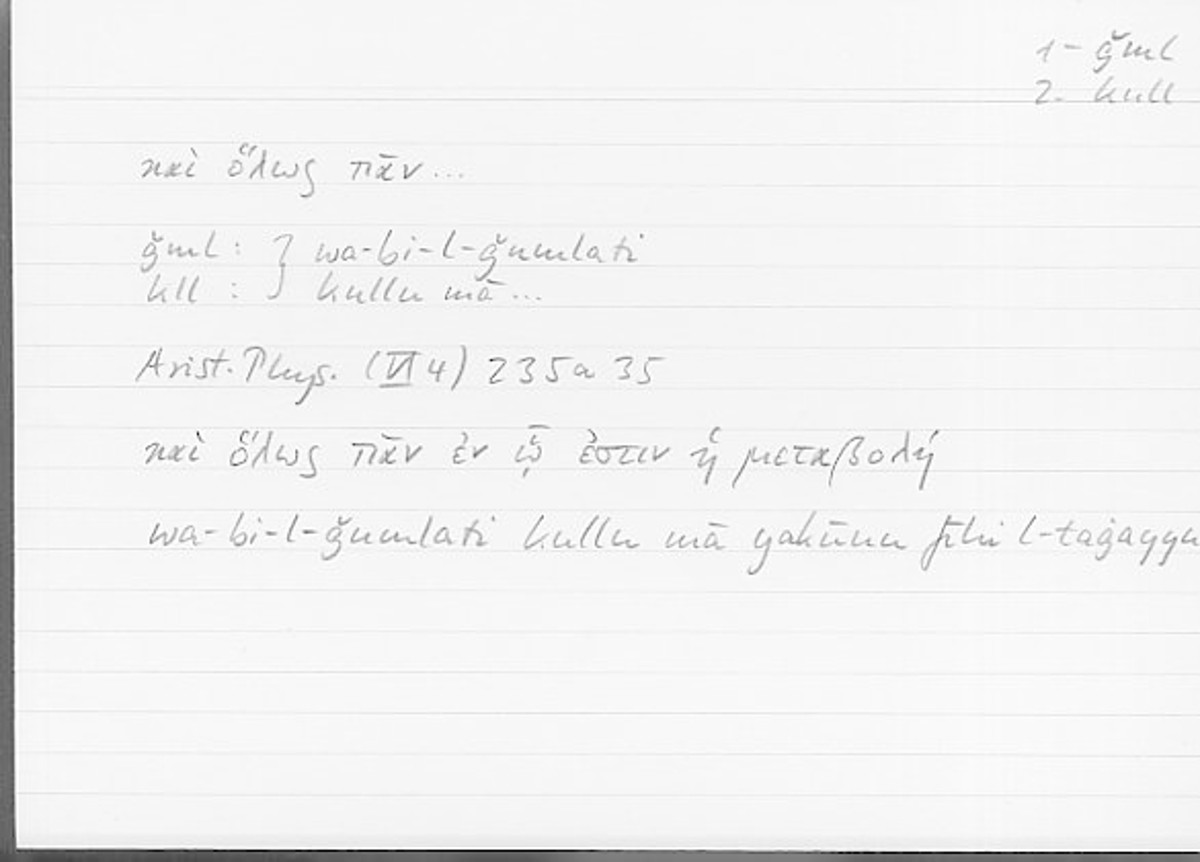 1 - ǧml
2. kull
καὶ ὅλως πᾶν...
ǧml : } wa-bi-l-ǧumlati
kll : } kullu mā...
Arist. Phys. (VI 4) 235a 35
καὶ ὅλως πᾶν ἐν ᾧ ἐστιν ἡ μεταβολή
wa-bi-l-ǧumlati kullu mā yakūnu fīhi l-taġayyu